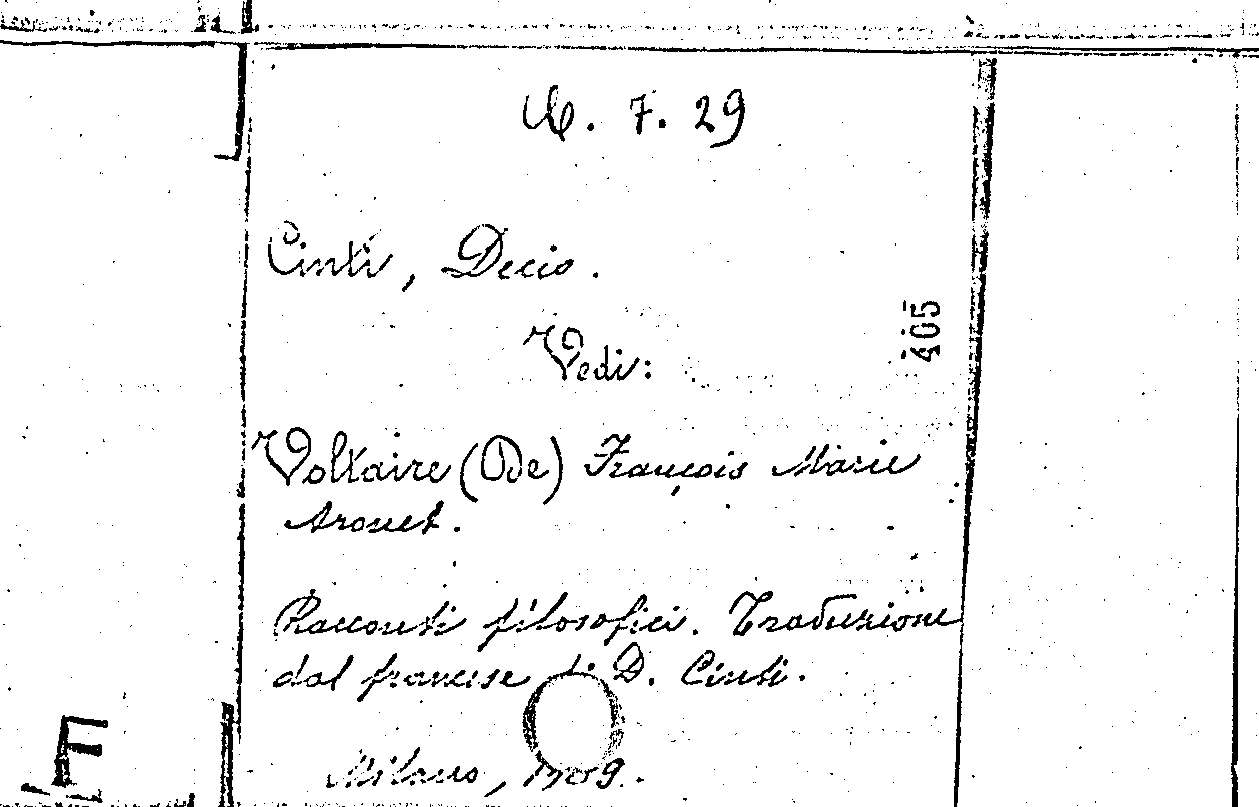 7. 29
Cinti, Decio.
Vedi:
405
Voltaire (De) François Marie
Arouet.
Racconti filosofici. Traduzione
dal francese di D. Cinti.
F
Milano,